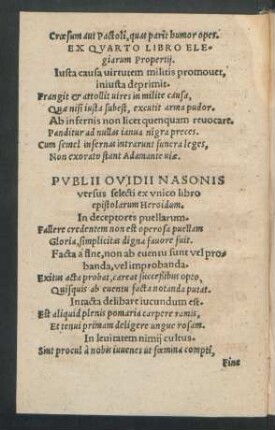 Cræsum aut Pactoli, quas parit humor opes.
EX QVARTO LIBRO ELE-
giarum Propertij.
Iusta causa virtutem militis promouet,
iniusta deprimit.
Frangit & attollit uires in milite causa,
Quæ nisi iusta subest, excutit arma pudor.
Ab infernis non licet quenquam reuocare.
Panditur ad nullas ianua nigra preces.
Cum semel infernas intrarunt funera leges,
Non exorato stant Adamante uiæ.
PVBLII OVIDII NASONIS
versus selecti ex vnico libro
epistolarum Heroidum.
In deceptores puellarum.
Fallere credentem non est operosa puellam
Gloria, simplicitas digna fauore fuit.
Facta a fine, non ab euentu sunt vel pro-
banda, vel improbanda.
Exitus acta probat, careat successibus opto,
Quisquis ab euentu facta notanda putat.
Intacta delibare iucundum est.
Est aliquid plenis pomaria carpere ramis,
Et tenui primam deligere ungue rosam.
In leuitatem nimij cultus.
Sint procul à nobis iuuenes ut fœmina compti,
Fine